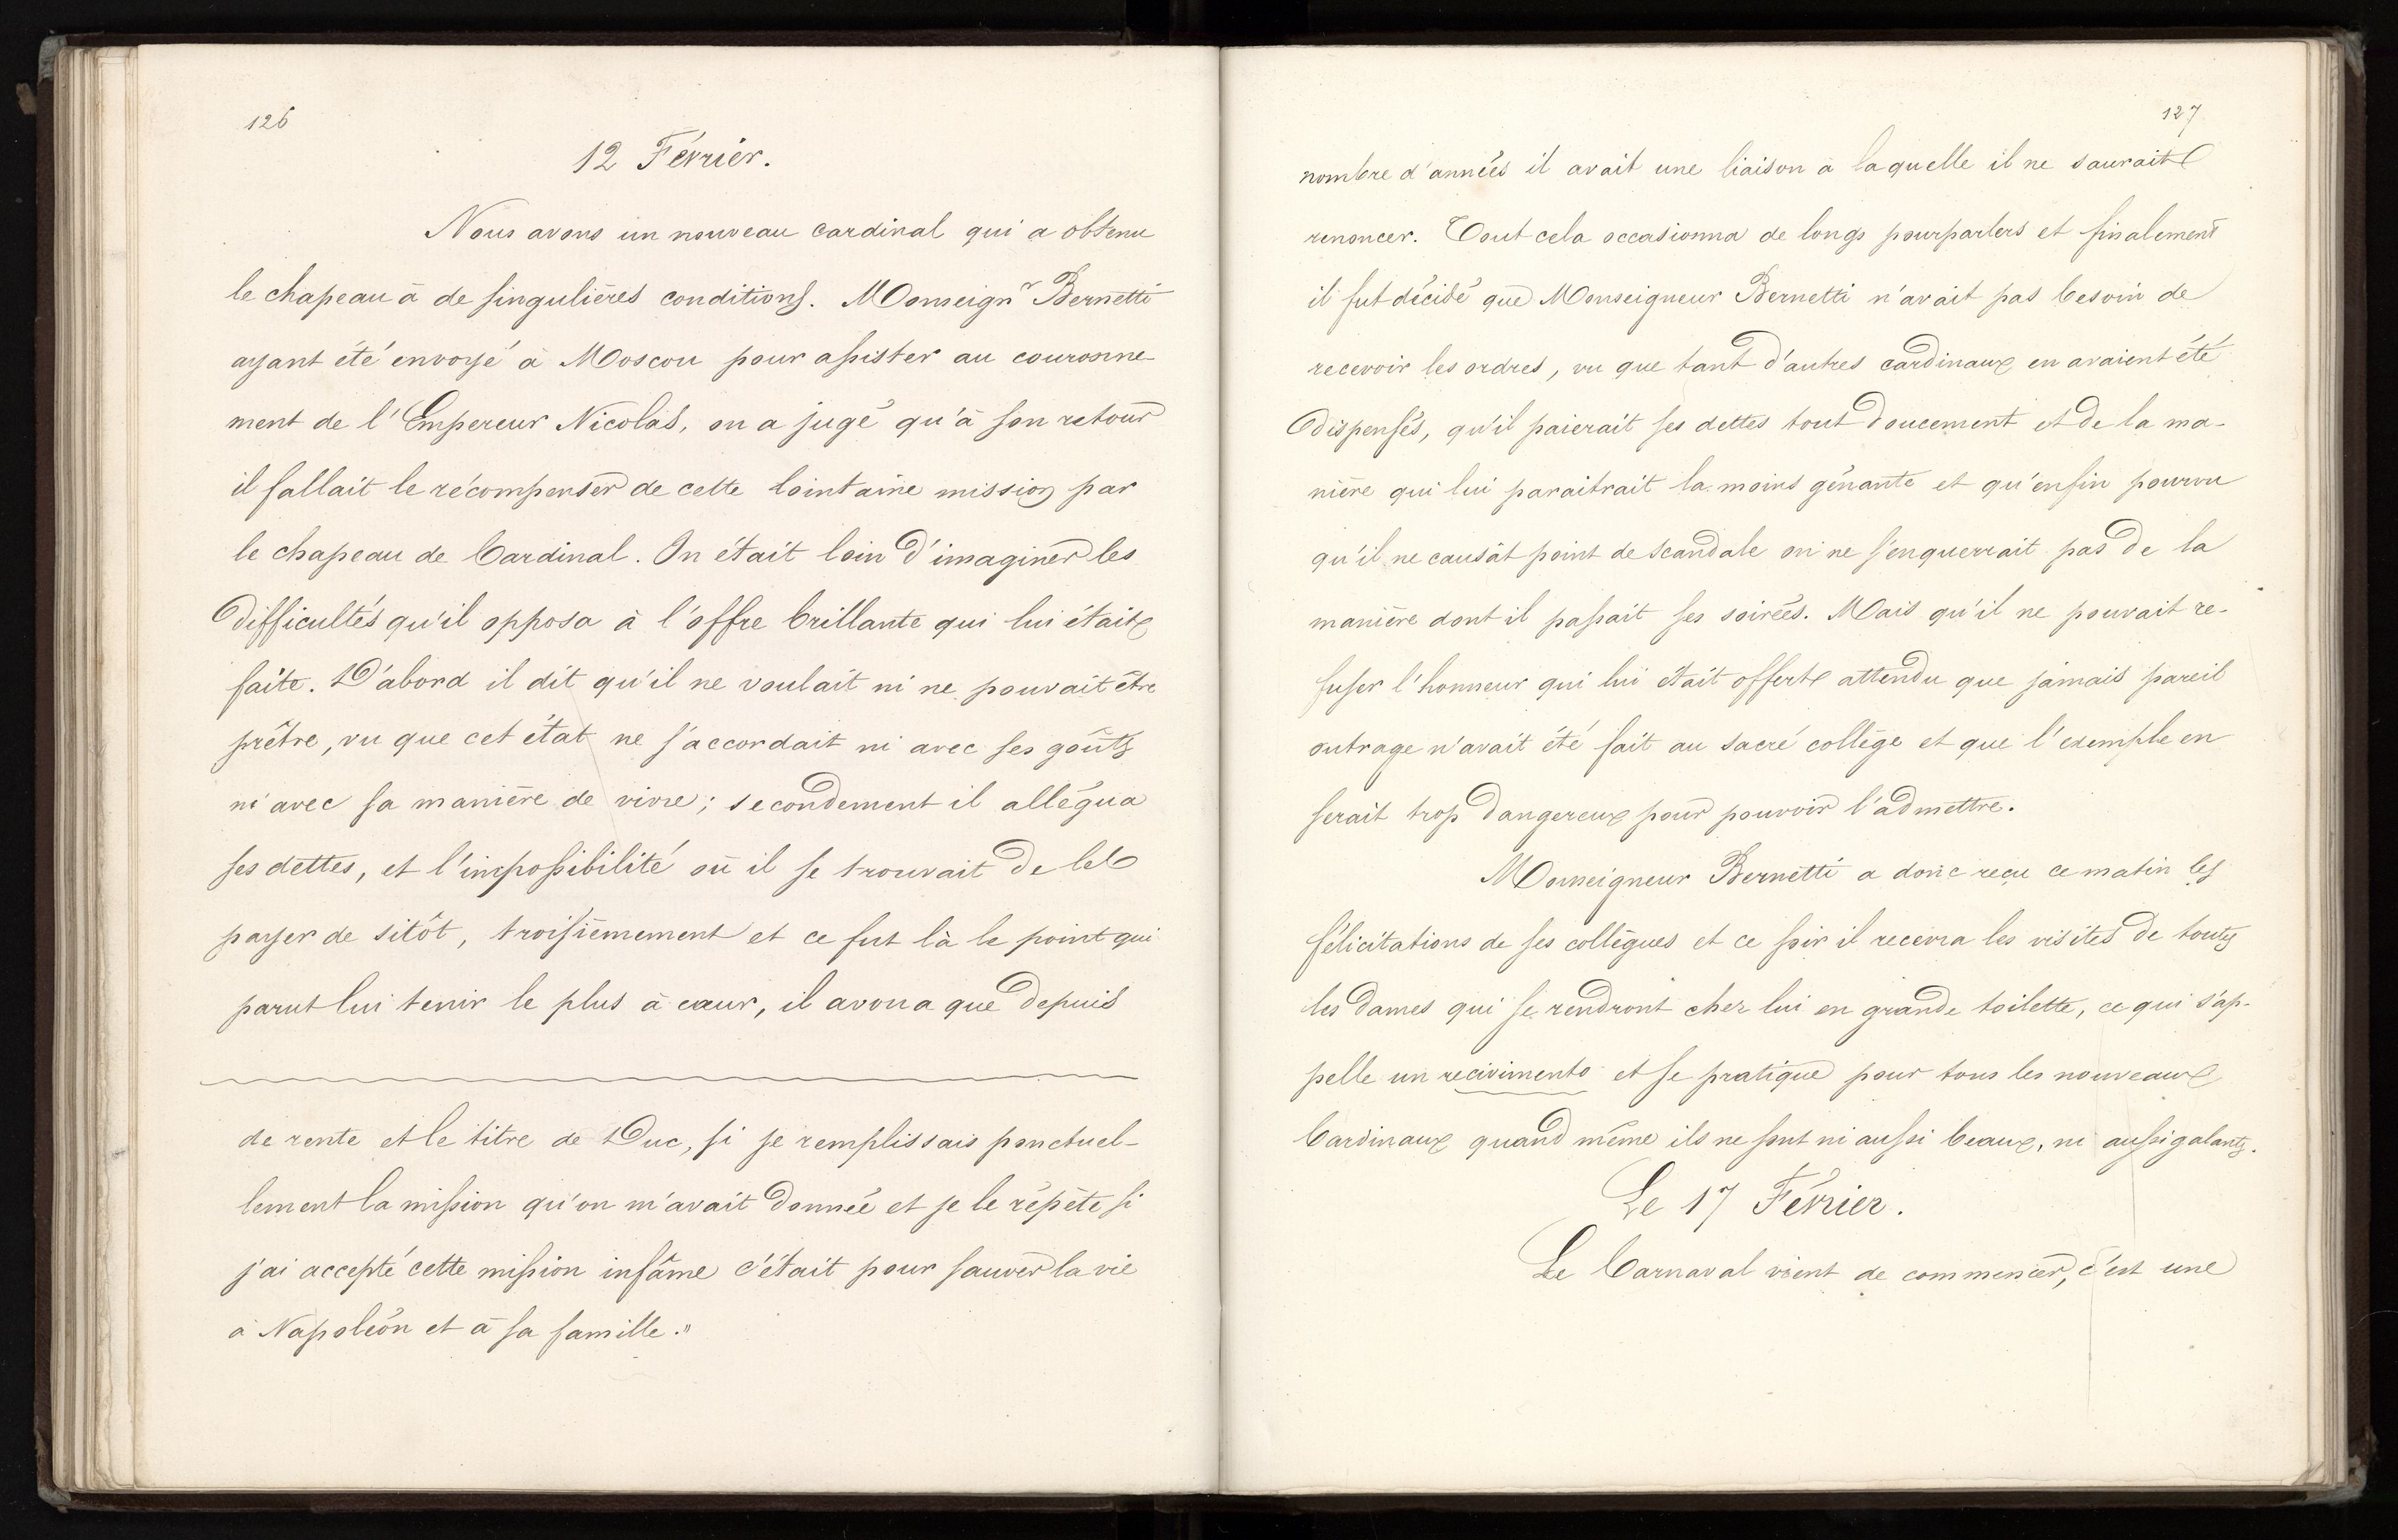 126
12 Février.
Nous avons un nouveau cardinal qui a obtenu
le chapeau à de singulières conditions. Monseign^r Bernetti
ayant été envoyé à Moscou pour assister au couronne-
ment de l'Empereur Nicolas, on a jugé qu'à son retour
il fallait le récompenser de cette lointaine mission par
le chapeau de Cardinal. On était loin d'imaginer les
difficultés qu'il opposa à l'offre brillante qui lui était
faite. D'abord il dit qu'il ne voulait ni ne pouvait être
prêtre, vu que cet état ne s'accordait ni avec ses goûts
ni avec sa manière de vivre; secondement il allégua
ses dettes, et l'impossibilité où il se trouvait de les
payer de sitôt, troisièmement et ce fut là le point qui
parut lui tenir le plus à cœur, il avoua que depuis
de rente et le titre de Duc, si je remplissais ponctuel-
lement la mission qu'on m'avait donnée et je le répète si
j'ai accepté cette mission infâme c'était pour sauver la vie
à Napoléon et à sa famille."
127
nombre d'années il avait une liaison à laquelle il ne saurait
renoncer. Tout cela occasionna de longs pourparlers et finalement
il fut décidé que Monseigneur Bernetti n'avait pas besoin de
recevoir les ordres, vu que tant d'autres cardinaux en avaient été
dispensés, qu'il paierait ses dettes tout doucement et de la ma-
nière qui lui paraitrait la moins gênante et qu'enfin pourvu
qu'il ne causât point de scandale on ne s'enquerrait pas de la
manière dont il passait ses soirées. Mais qu'il ne pouvait re-
fuser l'honneur qui lui était offert attendu que jamais pareil
outrage n'avait été fait au sacré collège et que l'exemple en
serait trop dangereux pour pouvoir l'admettre.
Monseigneur Bernetti a donc reçu ce matin les
félicitations de ses collègues et ce soir il recevra les visites de toutes
les dames qui se rendront chez lui en grande toilette, ce qui s'ap-
pelle un recivimento et se pratique pour tous les nouveaux
Cardinaux quand même ils ne sont ni aussi beaux, ni aussi galants.
Le 17 Février.
Le Carnaval vient de commencer, c'est une